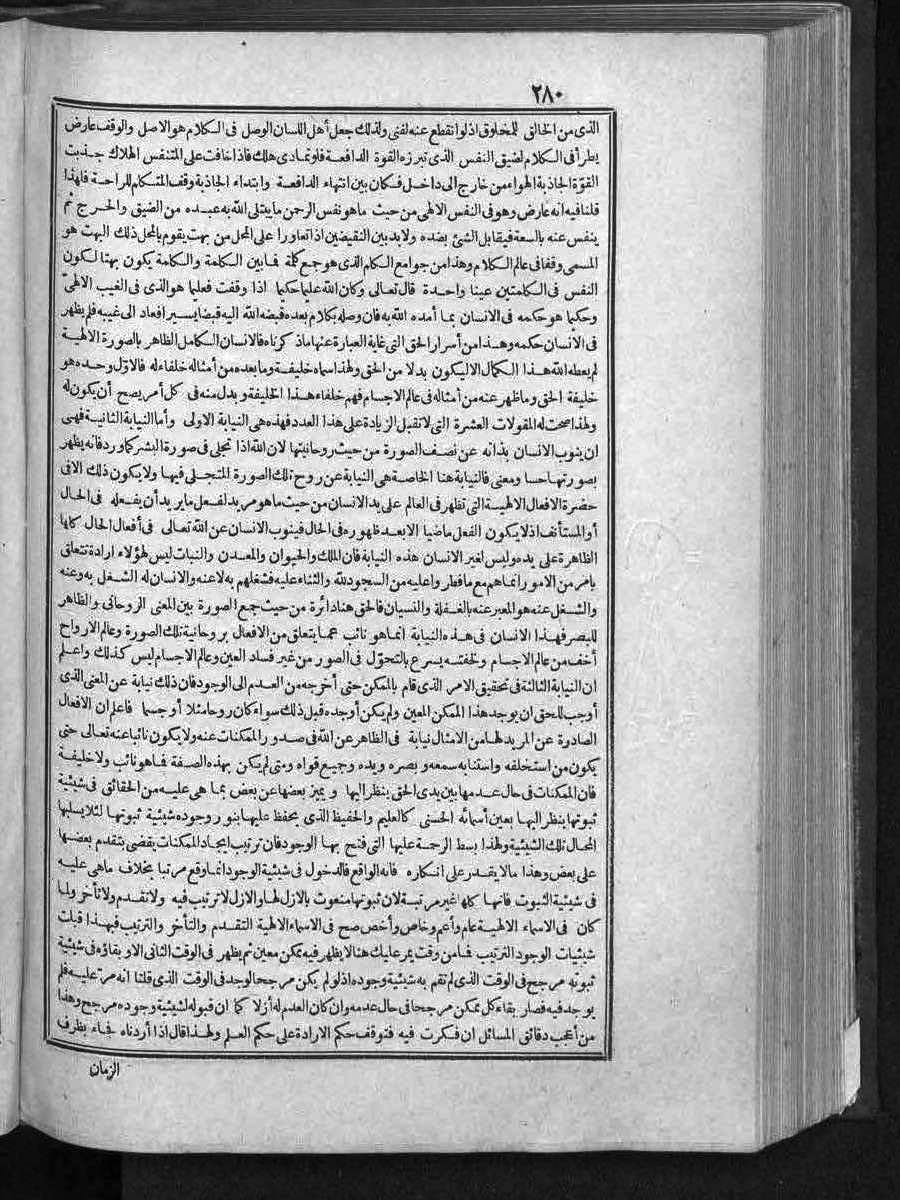 ٢٨٠
الذى من الخالق للمخلوق اذلوا نقطع عنه لفنى ولذلك جعل أهل اللسان الوصل فى الكلام هو الاصل والوقف عارض
يطرأ فى الكلام لضيق النفس الذى تبرزه القوة الدافعة فلو تمادى هلك فاذا خافت على المتنفس الهلاك جذبت
القوّة الجاذبة الهواء من خارج الى داخل فكان بين انتهاء الدافعة وابتداء الجاذبة وقف المتكام للراحة فلهذا
قلنا فيه انه عارض وهو فى النفس الالهى من حيث ما هو نفس الرحمن ما يبتلى الله به عبده من الضيق والحرج ثم
ينفس عنه بالسعة فيقابل الشئ بضده ولا بد بين النقيضين اذا تعاورا على المحل من بهت يقوم بالمحل ذلك البهت هو
المسمى وقفا فى عالم الكلام وهذا من جوامع الكام الذى هو جمع كلمة فما بين الكلمة والكلمة يكون بهتا لكون
النفس فى الكلمتين عينا واحدة قال تعالى وكان الله عليما حكيما اذا وقفت فعليما هو الذى فى الغيب الالهىّ
وحكيما هو حكمه فى الانسان بما أمده الله به فان وصله بكلام بعده قبضه الله اليه قبضا يسيرا فعاد الى غيبه فلم يظهر
فى الانسان حكمه وهذا من أسرار الحق التى غاية العبارة عنها ما ذكرناه فالانسان الكامل الظاهر بالصورة الالهية
لم يعطه الله هذا الكمال الا ليكون بدلا من الحق ولهذا سماه خليفة وما بعده من أمثاله خلفاء له فالاوّل وحده هو
خليفة الحق وما ظهر عنه من أمثاله فى عالم الاجسام فهم خلفاء هذا الخليفة وبدل منه فى كل أمر يصح أن يكون له
ولهذا صحت له المقولات العشرة التى لا تقبل الزيادة على هذا العدد فهذه هى النيابة الاولى وأما النيابة الثانية فهى
ان ينوب الانسان بذاته عن نصف الصورة من حيث روحانيتها لان الله اذا تجلى فى صورة البشر كما ورد فانه يظهر
بصورتها حسا ومعنى فالنيابة هنا الخاصة هى النيابة عن روح تلك الصورة المتجلى فيها ولا يكون ذلك الا فى
حضرة الافعال الالهية التى تظهر فى العالم على يد الانسان من حيث ما هو مريد لفعل ما يريد أن يفعله فى الحال
أو المستأنف اذ لا يكون الفعل ماضيا الا بعد ظهوره فى الحال فينوب الانسان عن الله تعالى فى أفعال الحال كلها
الظاهرة على يده وليس لغير الانسان هذه النيابة فان الملك والحيوان والمعدن والنبات ليس لهؤلاء ارادة تتعلق
بامر من الامور انما هم مع ما فطروا عليه من السجود لله والثناء عليه فشغلهم به لا عنه والانسان له الشغل به وعنه
والشغل عنه هو المعبر عنه بالغفلة والنسيان فالحق هنا دائرة من حيث جمع الصورة بين المعنى الروحانى والظاهر
للبصر فهذا الانسان فى هذه النيابة انما هو نائب عما يتعلق من الافعال بروحانية تلك الصورة وعالم الارواح
أخف من عالم الاجسام ولخفته يسرع بالتحوّل فى الصور من غير فساد العين وعالم الاجسام ليس كذلك واعلم
ان النيابة الثالثة فى تحقيق الامر الذى قام بالممكن حتى أخرجه من العدم الى الوجود فان ذلك نيابة عن المعنى الذى
أوجب للحق ان يوجد هذا الممكن المعين ولم يكن أوجده قبل ذلك سواء كان روحا مثلا أو جسما فاعلم ان الافعال
الصادرة عن المريد لها من الامثال نيابة فى الظاهر عن الله فى صدور الممكنات عنه ولا يكون نائبا عنه تعالى حتى
يكون من استخلفه واستنابه سمعه وبصره ويده وجميع قواه ومتى لم يكن بهذه الصفة فما هو نائب ولا خليفة
فان الممكنات فى حال عدمها بين يدى الحق ينظر اليها ويميز بعضها عن بعض بما هى عليه من الحقائق فى شيئية
ثبوتها ينظر اليها بعين أسمائه الحسنى كالعليم والحفيظ الذى يحفظ عليها بنور وجوده شيئية ثبوتها لئلا يسلبها
المحال تلك الشيئية ولهذا بسط الرحمة عليها التى فتح بها الوجود فان ترتيب ايجاد الممكنات يقضى بتقدم بعضها
على بعض وهذا ما لا يقدر على انكاره فانه الواقع فالدخول فى شيئية الوجود انما وقع مرتبا بخلاف ما هى عليه
فى شيئية الثبوت فانها كلها غير مرتبة لان ثبوتها منعوت بالازل لها والازل لا ترتيب فيه ولا تقدم ولا تأخر ولما
كان فى الاسماء الالهية عام وأعم وخاص وأخص صح فى الاسماء الالهية التقدم والتأخر والترتيب فبهذا قبلت
شيئيات الوجود الترتيب فما من وقت يمر عليك هنا لا يظهر فيه ممكن معين ثم يظهر فى الوقت الثانى الا وبقاؤه فى شيئية
ثبوته مرجح فى الوقت الذى لم تقم به شيئية وجوده اذ لو لم يكن مرجحا لوجد فى الوقت الذى قلنا انه مرّ عليه فلم
يوجد فيه فصار بقاء كل ممكن مرجحا فى حال عدمه وان كان العدم له أزلا كما ان قبوله لشيئية وجوده مرجح وهذا
من أعجب دقائق المسائل ان فكرت فيه فتوقف حكم الارادة على حكم العلم ولهذا قال اذا أردناه فجاء بظرف
الزمان